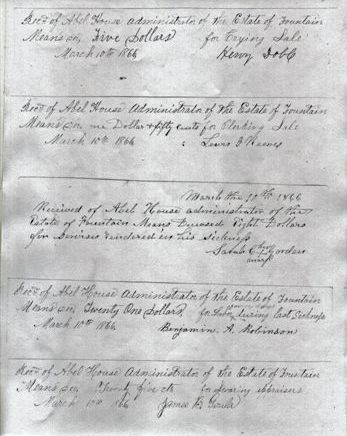 Recd of Abel House administrator of the Estate of Fountain
Means sen. Five Dollars for Crying Sale
March 10th 1866 Henry Dobb
Recd of Abel House Administrator of the Estate of Fountain
Means sen one Dollar & fifty cents for Clerking Sale
March 10th 1866 Lewis Reeves
March the 10th 1866
Received of Abel House administrator of the
Estate of Fountain Means Eight Dollars
for Services rendered in his Sickness
Sarah C. Gorden
her
mark
Recd of Abel House Administrator of the Estate of Fountain
Means sen Twenty One Dollars for during last Sickness
March 10th 1866 Benjamin A. Robinson
Recd of Abel House Administrator of the Estate of Fountain
Means sen Twenty five cts for Swearing appraisers
March 10th 1866 James